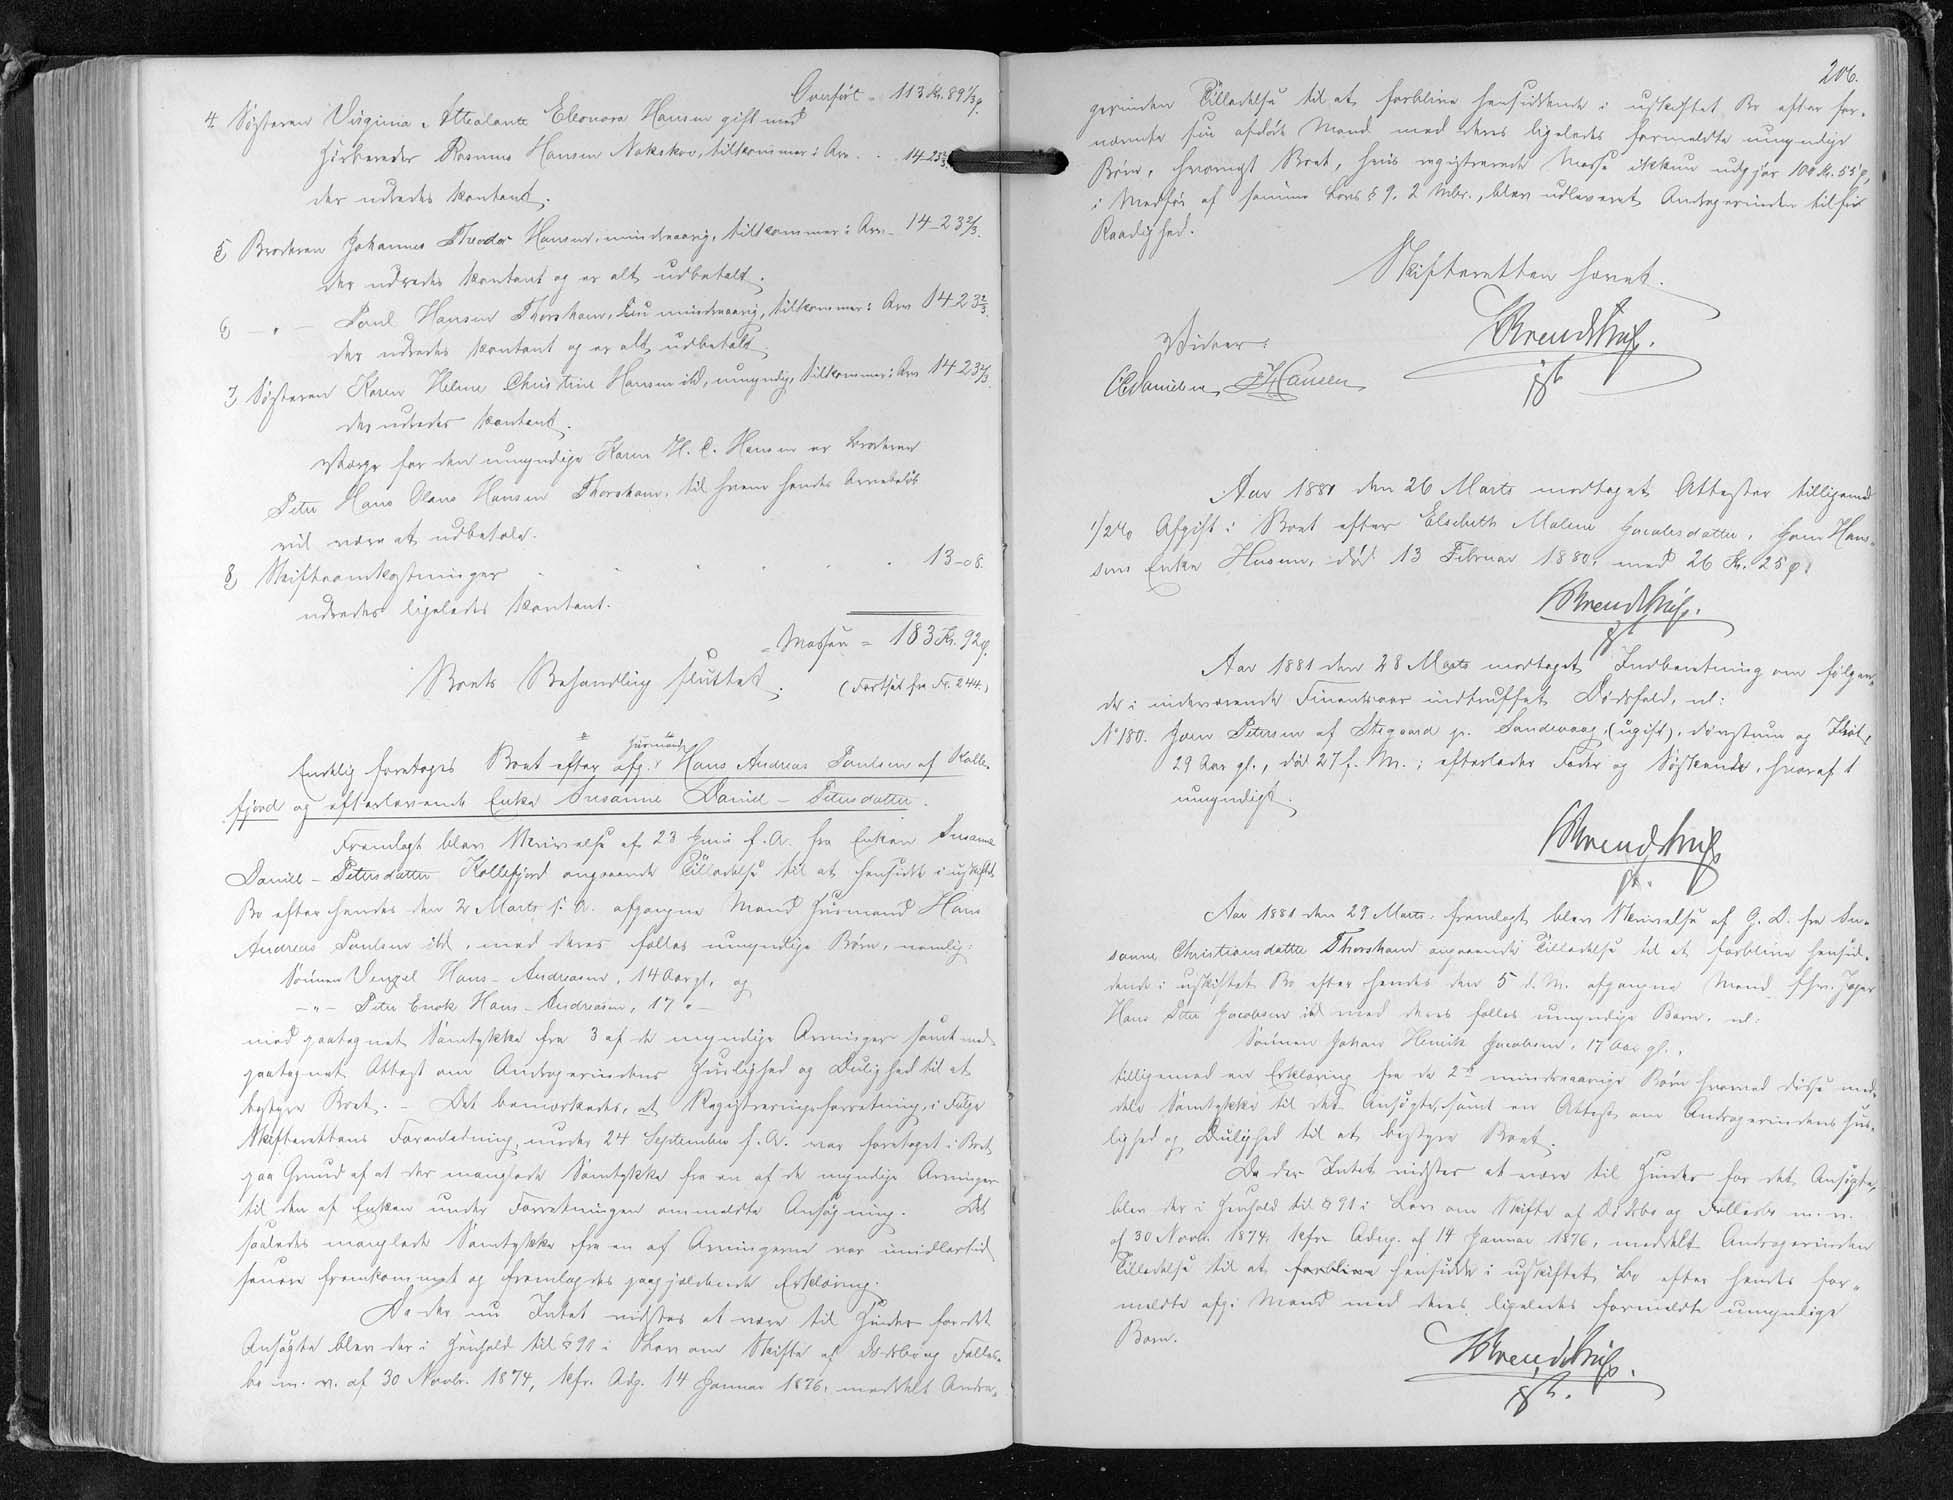 Overført = 113 Kr. 89 1/3 ø.
4. Søsteren Virginia Attealante Eleonora Hansen gift med
Rasmus Hansen Nakskov, tilkommer i Arv . . 14-23 2/3
der udredes kontant.
5) Broderen Johannes Theodor Hansen, mindreaarig, tilkommer i Arv - 14-23 2/3.
der udredes kontant og er alt udbetalt.
6) - " - Poul Hansen Thorshavn, mindreaarig, tilkommer i Arv 14-23 2/3.
der udredes kontant og er alt udbetalt.
7) Søsteren Karen Helene Christine Hansen ibd, umyndig, tilkommer i Arv 14-23 2/3.
der udredes kontant.
Værge for den umyndige Karen H. C. Hansen er Broderen
Peter Hans Olaus Hansen Thorshavn, til hvem hendes Arvebeløb
vil være at udbetale.
8) Skifteomkostninger . . . . . 13-08.
udredes ligeledes kontant.
= Massen = 183 Kr. 92 ø.
Boets Behandling sluttet. (Fortsat fra Fol. 244.)
Endelig foretoges Boet efter afg. Husmand Hans Andreas Poulsen af Kolle-
fjord og efterlevende Enke Susanne Daniel-Petersdatter.
Fremlagt blev Skrivelse af 23 Juni f. A. fra Enken Susanne
Daniel-Petersdatter Kollefjord angaaende Tilladelse til at hensidde i uskiftet
Bo efter hendes den 2 Marts f. A. afgangne Mand Husmand Hans
Andreas Poulsen ibd, med deres fælles umyndige Børn, nemlig:
Sønnen Venzel Hans-Andreasen, 14 Aar gl., og
- " - Peter Enok Hans-Andreasen, 17 " -
med paategnet Samtykke fra 3 af de myndige Arvinger samt med
paategnet Attest om Andragerindens Huslighed og Dulighed til at
bestyre Boet. - Det bemærkedes, at Registreringsforretning, i Følge
Skifterettens Foranledning, under 24 September f. A. var foretaget i Boet
paa Grund af at der manglede Samtykke fra en af de myndige Arvinger
til den af Enken under Forretningen ommeldte Ansøgning. Det
saaledes manglende Samtykke fra en af Arvingerne var imidlertid
senere fremkommet og fremlagdes paagjældende Erklæring.
Da der nu Intet vidstes at være til Hinder for det
Ansøgte blev der i Henhold til § 91 i Lov om Skifte af Dødsbo og Fælles-
bo m. v. af 30 Novbr. 1874, kfr. Adg. 14 Januar 1876, meddelt Andra-
206.
gerinden Tilladelse til at forblive hensiddende i uskiftet Bo efter for-
nævnte sin afdøde Mand med deres ligeledes formeldte umyndige
Børn, hvornæst Boet, hvis registrerede Masse ikkun udgjør 108 Kr. 55 ø,
i Medfør af samme Lovs § 9, 2 Mbr., blev udleveret Andragerinden til fri
Raadighed.
Skifteretten hævet.
Brendstrup.
gst.
Vidner:
CDanielsen JHansen
Aar 1881 den 26 Marts modtaget Attester tilligemed
1/2 % Afgift i Boet efter Elsebeth Malene Jacobsdatter, Joen Han-
sens Enke Husum, død 13 Februar 1880, med 26 Kr. 25 ø.
Brendstrup.
gst.
Aar 1881 den 28 Marts modtaget Indberetning om følgen-
de i indeværende Finantsaar indtruffet Dødsfald, nl:
No 180. Joen Petersen af Stegaard pr. Sandevaag, (ugift),
29 Aar gl., død 27 f. M.; efterlader Fader og Søskende, hvoraf 1
umyndigt.
Brendstrup
gst.
Aar 1881 den 29 Marts fremlagt blev Skrivelse af G. D. fra Su-
sanne Christiansdatter Thorshavn angaaende Tilladelse til at forblive hensid-
dende i uskiftet Bo efter hendes den 5 d. M. afgangne Mand fhv. Jæger
Hans Peter Jacobsen ibd med deres fælles umyndige Barn, nl:
Sønnen Johan Henrik Jacobsen, 17 Aar gl.,
tilligemed en Erklæring fra de 2de mindreaarige Børn hvorved disse med-
dele Samtykke til det Ansøgte, samt en Attest om Andragerindens Hus-
lighed og Dulighed til at bestyre Boet.
Da der Intet vidstes at være til Hinder for det Ansøgte,
blev der i Henhold til § 91 i Lov om Skifte af Dødsbo og Fællesbo m. v.
af 30 Novbr. 1874, kfr. Adng. af 14 Januar 1876, meddelt Andragerinden
Tilladelse til at forblive hensidde i uskiftet Bo efter hendes for-
meldte afg. Mand med deres ligeledes formeldte umyndige
Barn.
Brendstrup.
gst.